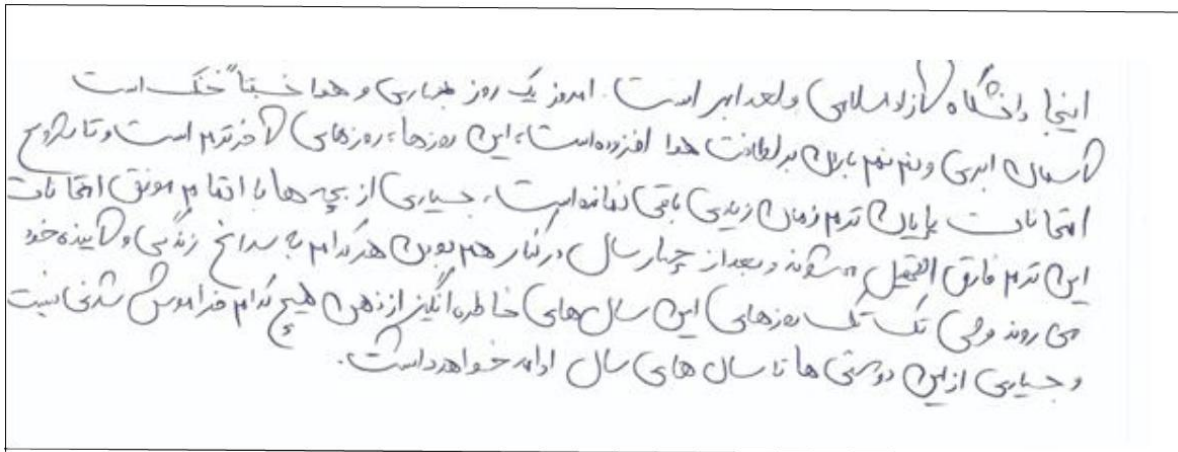 اینجا دانشگاه آزاد اسلامی واحد ابهر است. امروز یک روز بهاری و هوا نسبتاً خنک است
آسمان ابری و نم نم باران بر لطافت هوا افزوده است، این روزها، روزهای آخر ترم است و تا شروع
امتحانات پایان ترم زمان زیادی باقی نمانده است، بسیاری از بچه ها با اتمام موفق امتحانات
این ترم فارق التحصیل می شوند و بعد از چهار سال در کنار هم بودن هر کدام به سراغ زندگی و آینده خود
می روند ولی تک تک روزهای این سال های خاطره انگیز از ذهن هیچ کدام فراموش شدنی نیست
و بسیاری از این دوستی ها تا سال های سال ادامه خواهد داشت.